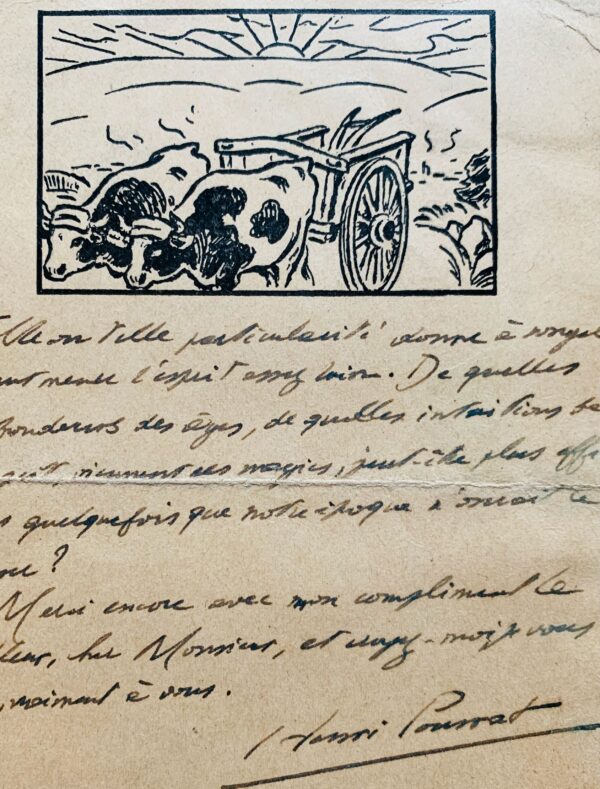 elle ou telle particularité donne à songe
ut mener l'esprit assez loin. De quelles
fondeurs des âges, de quelles intuitions
viennent ces magies, peut-être plus
quelquefois que notre époque n'oserait le
?
Merci encore avec mon compliment le
lleur, cher Monsieur, et croyez-moi je vous
vraiment à vous.
Henri Pourrat